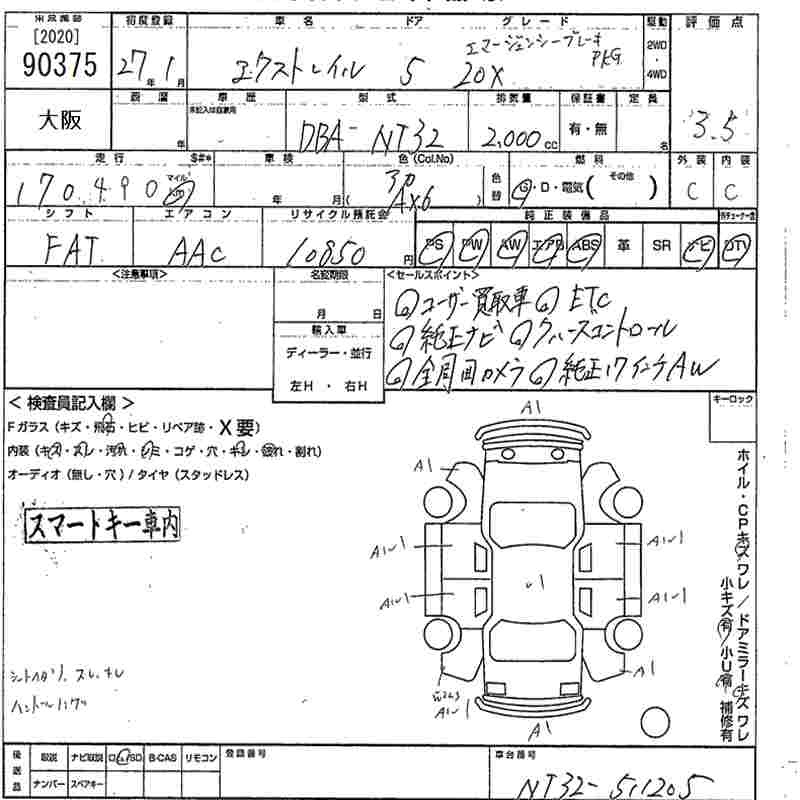 [2020]
90375
大阪
初度登録
27年1月
車名
エクストレイル
ドア
5
グレード
エマージェンシーブレーキ
PKG
20X
駆動
2WD
・
4WD
評価点
3.5
車歴
未記入は自家用
年
型式
DBA-NT32
排気量
2,000cc
保証書
有・無
定員
名
走行
170,490
マイル
Km
車検
年 月
色(Col.No)
( )
色替
燃料
G・D・電気( その他 )
外装
C
内装
C
シフト
FAT
エアコン
AAC
リサイクル預託金
10850円
純正装備品
PS
PW
AW
エアB
ABS
革
SR
ナビ
DTV
<注意事項>
名変期限
月 日
輸入車
ディーラー・並行
左H・右H
<セールスポイント>
ユーザー買取車 ETC
純正ナビ クルーズコントロール
全周囲カメラ 純正17インチAW
キーロック
<検査員記入欄>
Fガラス(キズ・飛石・ヒビ・リペア跡・X要)
内装(キズ・スレ・汚れ・シミ・コゲ・穴・キレ・破れ・割れ)
オーディオ(無し・穴)/タイヤ(スタッドレス)
スマートキー車内
A1
A1
A1
A1
ホイル・CPキズワレ/ドアミラーキズワレ
小キズ有/小U有 補修有
後送品
取説
ナビ取説
B-CAS
リモコン
ナンバー
スペアキー
登録番号
車台番号
NT32-511205